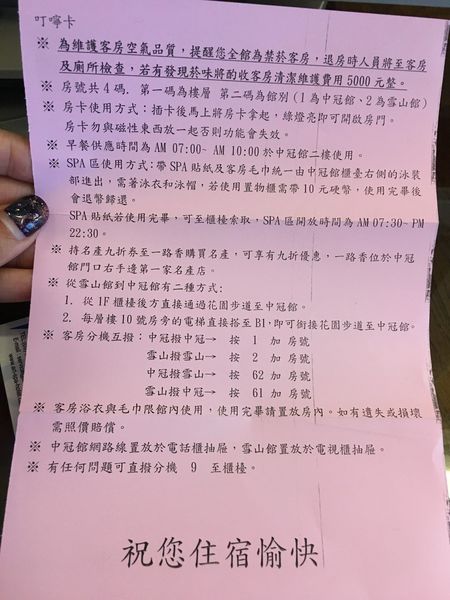 叮嚀卡
※ 為維護客房空氣品質，提醒您全館為禁菸客房，退房時人員將至客房
及廁所檢查，若有發現菸味將酌收客房清潔維護費用 5000 元整。
※ 房號共 4 碼. 第一碼為樓層 第二碼為館別（1 為中冠館、2 為雪山館）
※ 房卡使用方式：插卡後馬上將房卡拿起，綠燈亮即可開啟房門。
房卡勿與磁性東西放一起否則功能會失效。
※ 早餐供應時間為 AM 07:00~ AM 10:00 於中冠館二樓使用。
※ SPA 區使用方式：帶 SPA 貼紙及客房毛巾統一由中冠館櫃臺右側的泳裝
部進出，需著泳衣和泳帽，若使用置物櫃需帶 10 元硬幣，使用完畢後
會退幣歸還。
SPA 貼紙若使用完畢，可至櫃檯索取，SPA 區開放時間為 AM 07:30~ PM
22:30。
※ 持名產九折券至一路香購買名產，可享有九折優惠，一路香位於中冠
館門口右手邊第一家名產店。
※ 從雪山館到中冠館有二種方式：
1. 從 1F 櫃檯後方直接通過花園步道至中冠館。
2. 每層樓 10 號房旁的電梯直接搭至 B1,即可銜接花園步道至中冠館。
※ 客房分機互撥：中冠撥中冠→ 按 1 加 房號
雪山撥雪山→ 按 2 加 房號
中冠撥雪山→ 按 62 加 房號
雪山撥中冠→ 按 61 加 房號
※ 客房浴衣與毛巾限館內使用，使用完畢請置放房內。如有遺失或損壞
需照價賠償。
※ 中冠館網路線置放於電話櫃抽屜，雪山館置放於電視櫃抽屜。
※ 有任何問題可直撥分機 9 至櫃檯。
祝您住宿愉快